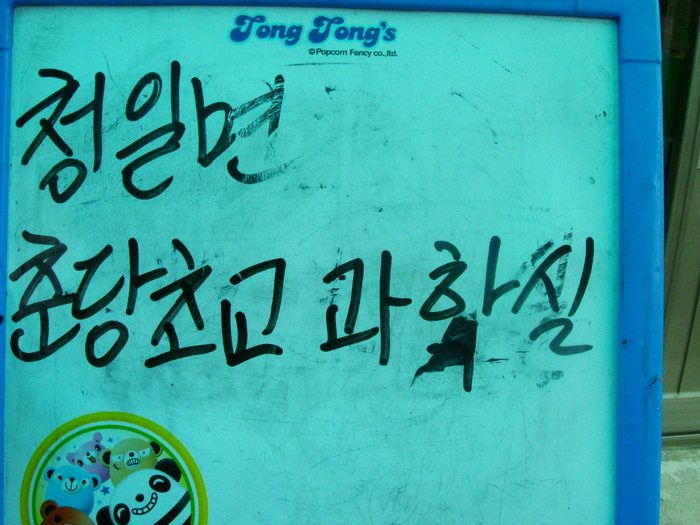 Tong Tong's
©Popcorn Fancy co.,ltd.
청일면
춘당초교 과학실